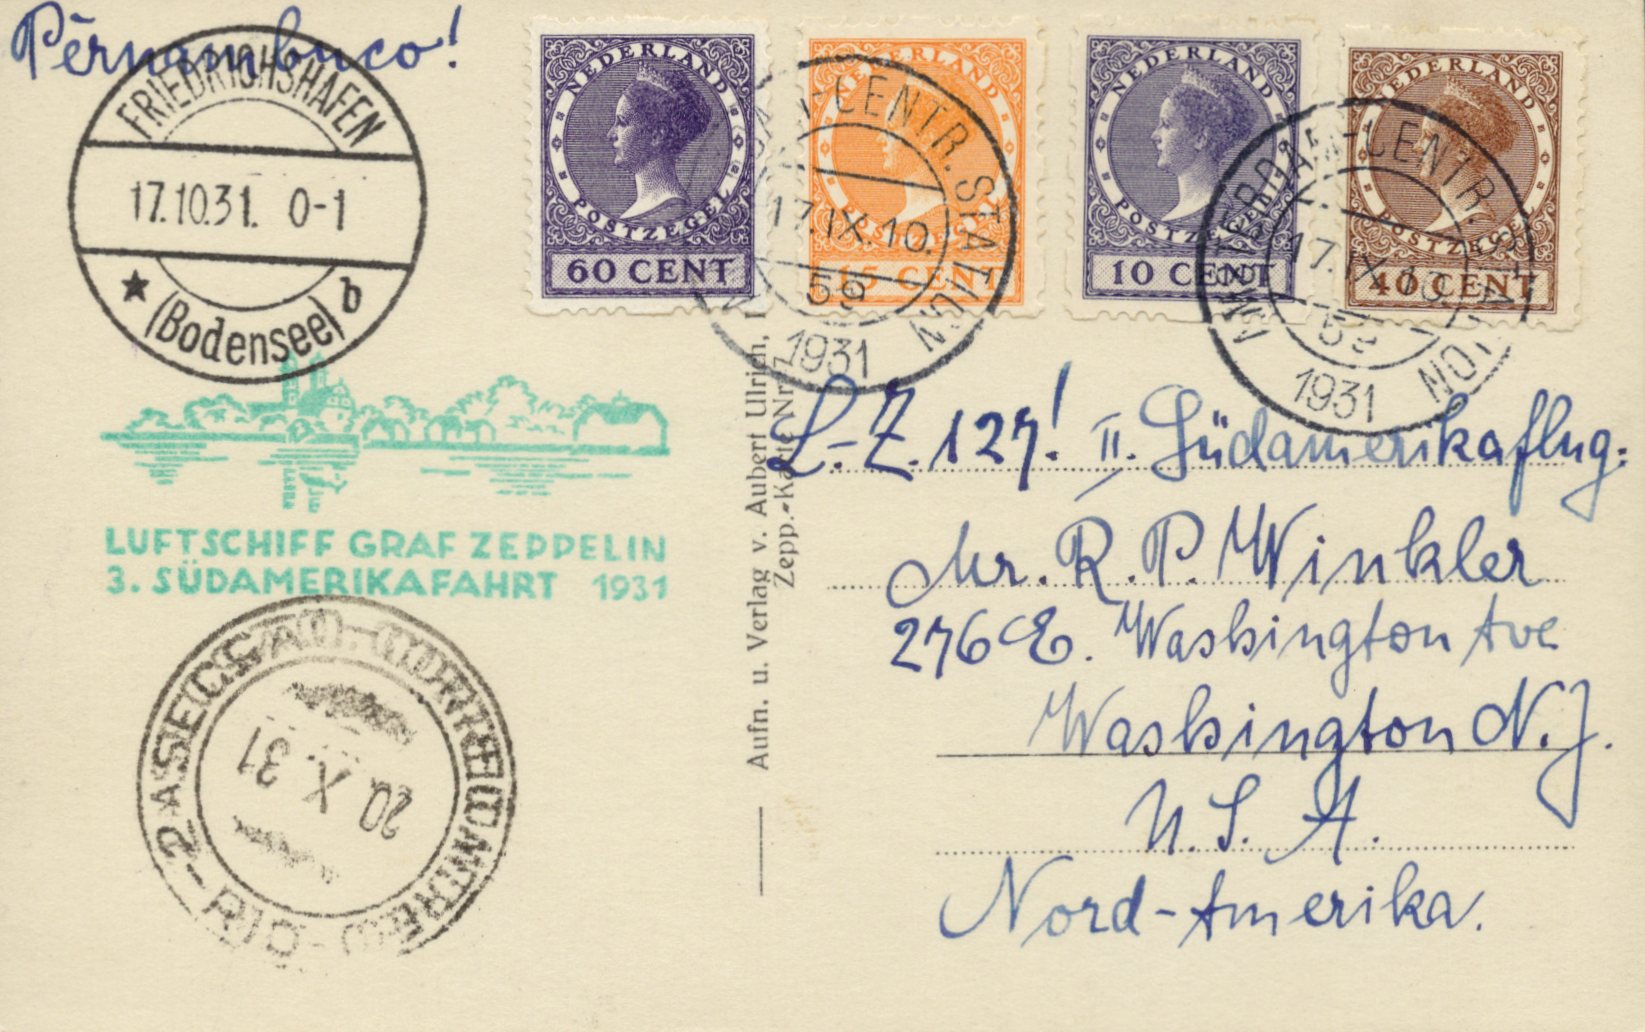 Pernambuco!
FRIEDRICHSHAFEN
17.10.31. 0-1
(Bodensee) b
NEDERLAND
POSTZEGEL
60 CENT
NEDERLAND
POSTZEGEL
15 CENT
NEDERLAND
POSTZEGEL
10 CENT
NEDERLAND
POSTZEGEL
40 CENT
-CENTR. STATION
17.IX.10.
59
1931
AMSTERDAM-CENTR. STATION
17.IX.10.
59
1931
LUFTSCHIFF GRAF ZEPPELIN
3. SÜDAMERIKAFAHRT 1931
20 X 31
Aufn. u. Verlag v. Aubert Ulrich,
Zepp.-Karte Nr. 7
L.-Z. 127! II. Südamerikaflug:
Mr. R. P. Winkler
276 E. Washington Ave
Washington N. J.
U. S. A.
Nord-Amerika.